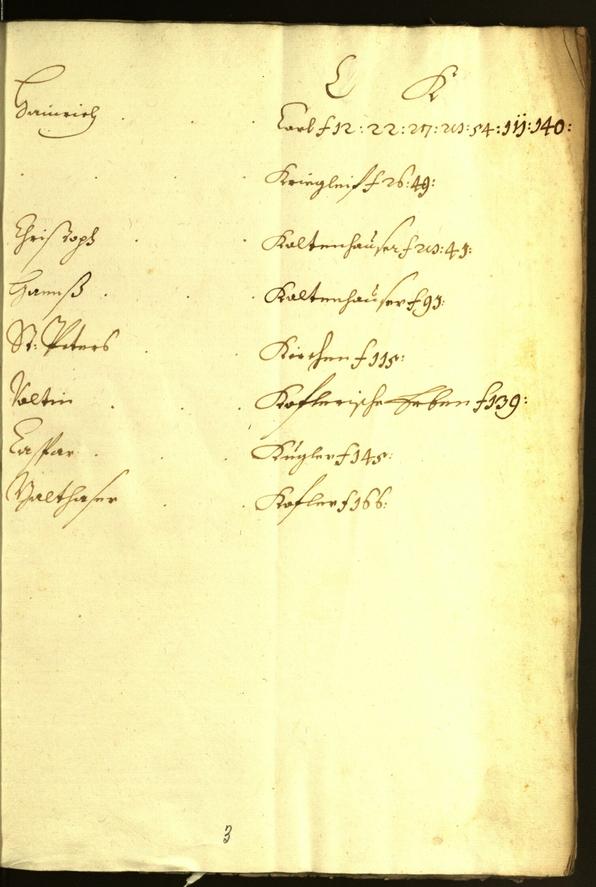 C K
Hainrich . . Carl f 12: 22: 27: 28: 54: 111: 140:
. . Krieglein f 26: 49:
Christoph . . Kaltenhauser f 28: 41:
Hannß . . Kaltenhauser f 91:
St: Peters . . Kirchen f 115:
Valtin . . Koflerische Erben f 139:
Caspar . . Kugler f 145:
Balthaser . . Kofler f 166:
3